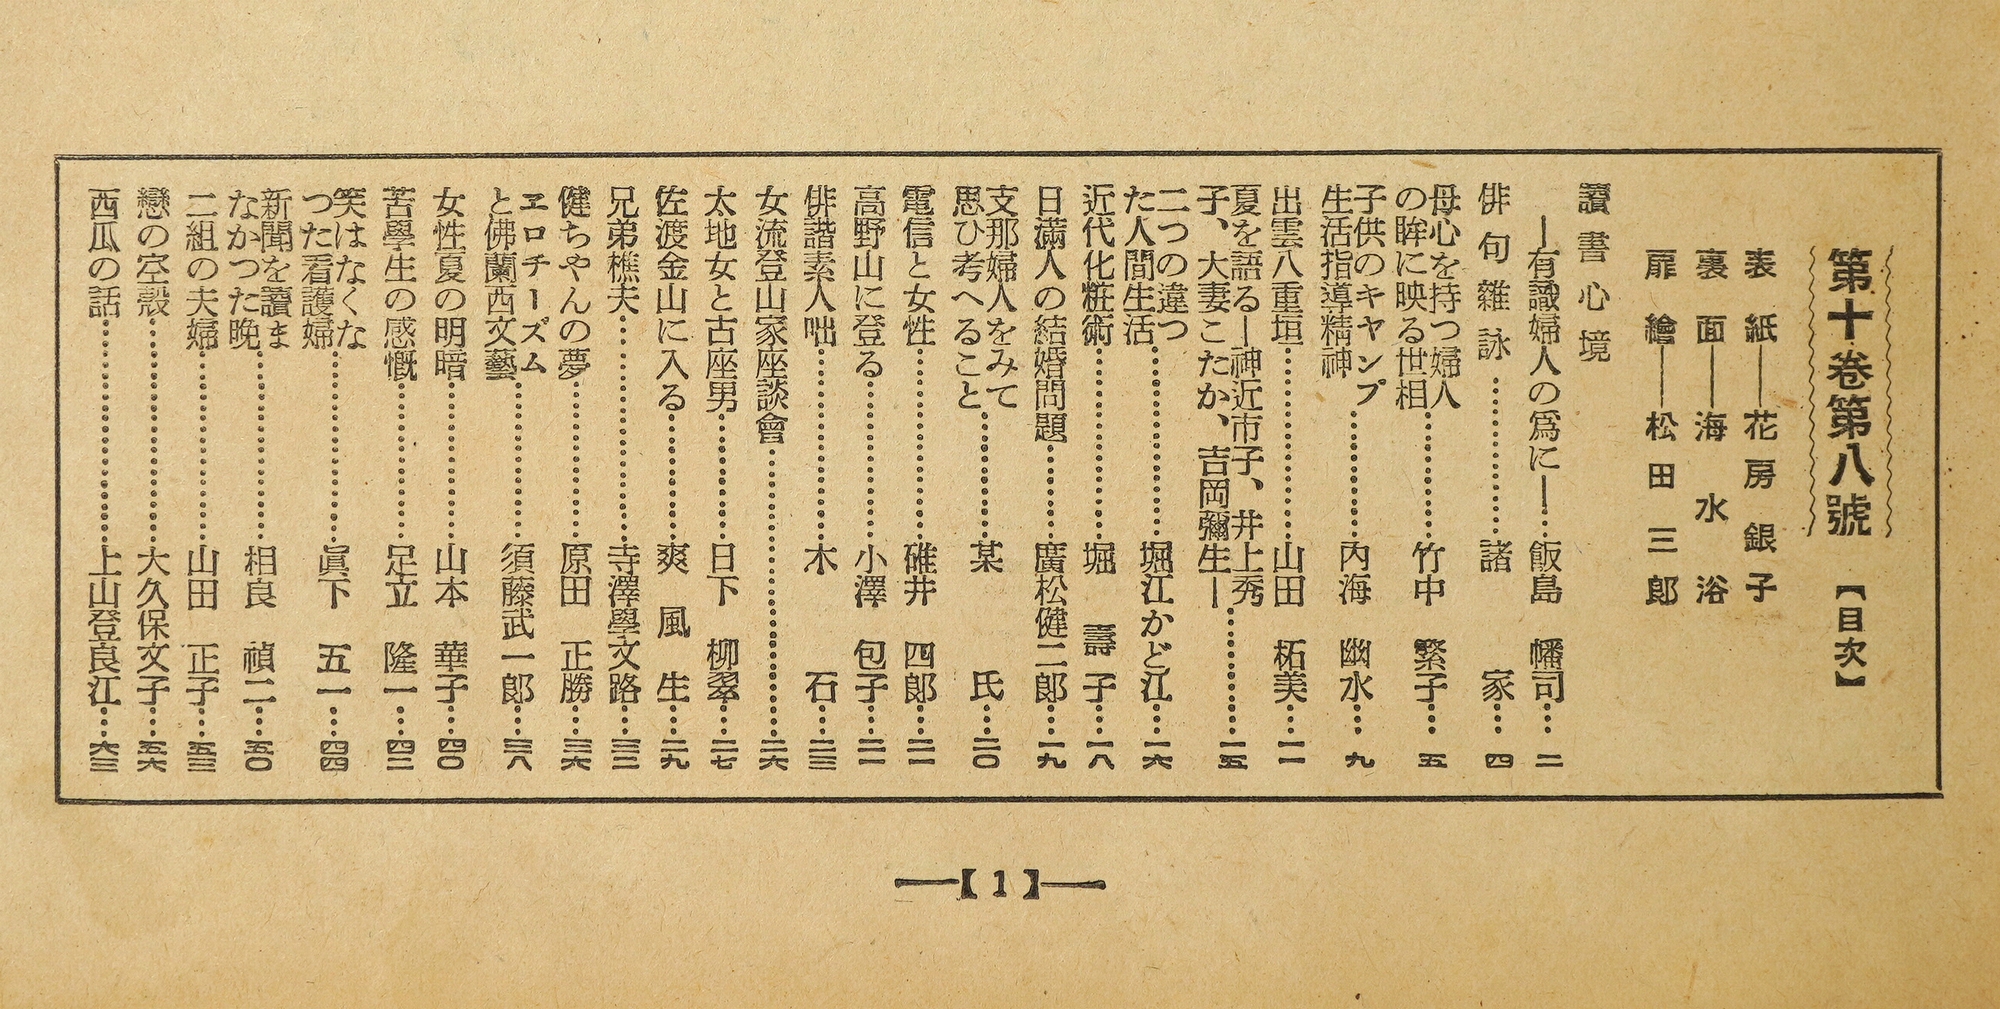 第十卷第八號 【目次】
表紙――花房銀子
裏面――海水浴
扉繪――松田三郎
讀書心境
―有識婦人の爲に―…飯島 幡司…二
俳句雜詠………諸 家…四
母心を持つ婦人
の眸に映る世相………竹中 繁子…五
子供のキャンプ
生活指導精神………內海 幽水…九
出雲八重垣………山田 柘美…一一
夏を語る―神近市子、井上秀
子、大妻こたか、吉岡彌生―………一五
二つの違つ
た人間生活………堀江かど江…一六
近代化粧術………堀 壽子…一八
日滿人の結婚問題………廣松健二郎…一九
支那婦人をみて
思ひ考へること………某 氏…二〇
電信と女性………碓井 四郎…二一
高野山に登る………小澤 包子…二一
俳諧素人咄………木 石…二三
女流登山家座談會………二六
太地女と古座男………日下 柳翠…二七
佐渡金山に入る………爽 風 生…二九
兄弟樵夫………寺澤學文路…三二
健ちやんの夢………原田 正勝…三六
ヱロチーズム
と佛蘭西文藝………須藤武一郎…三八
女性夏の明暗………山本 華子…四〇
苦學生の感慨………足立 隆一…四二
笑はなくな
つた看護婦………眞下 五一…四四
新聞を讀ま
なかつた晩………相良 禎二…五〇
二組の夫婦………山田 正子…五三
戀の空殼………大久保文子…五六
西瓜の話………上山登良江…六三
【1】